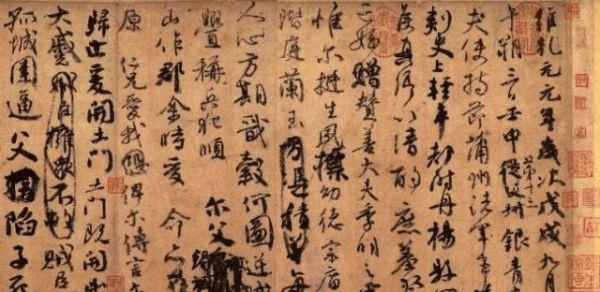 維乾元元年歲次戊戌九月
午朔三日壬申第十三從父銀青
夫使持節蒲州諸軍事
刺史上輕車都尉丹楊縣開
侯真卿以清酌庶羞
亡姪贈贊善大夫季明之
惟爾挺生夙標幼德宗廟
階庭蘭玉每
人心方期戩穀何圖逆
釁稱兵犯順爾父
山作郡余時受命亦
原仁兄愛我俾爾傳言
歸止爰開土門土門既開
大蹙賊臣擁衆不救賊臣
孤城圍逼父陷子死